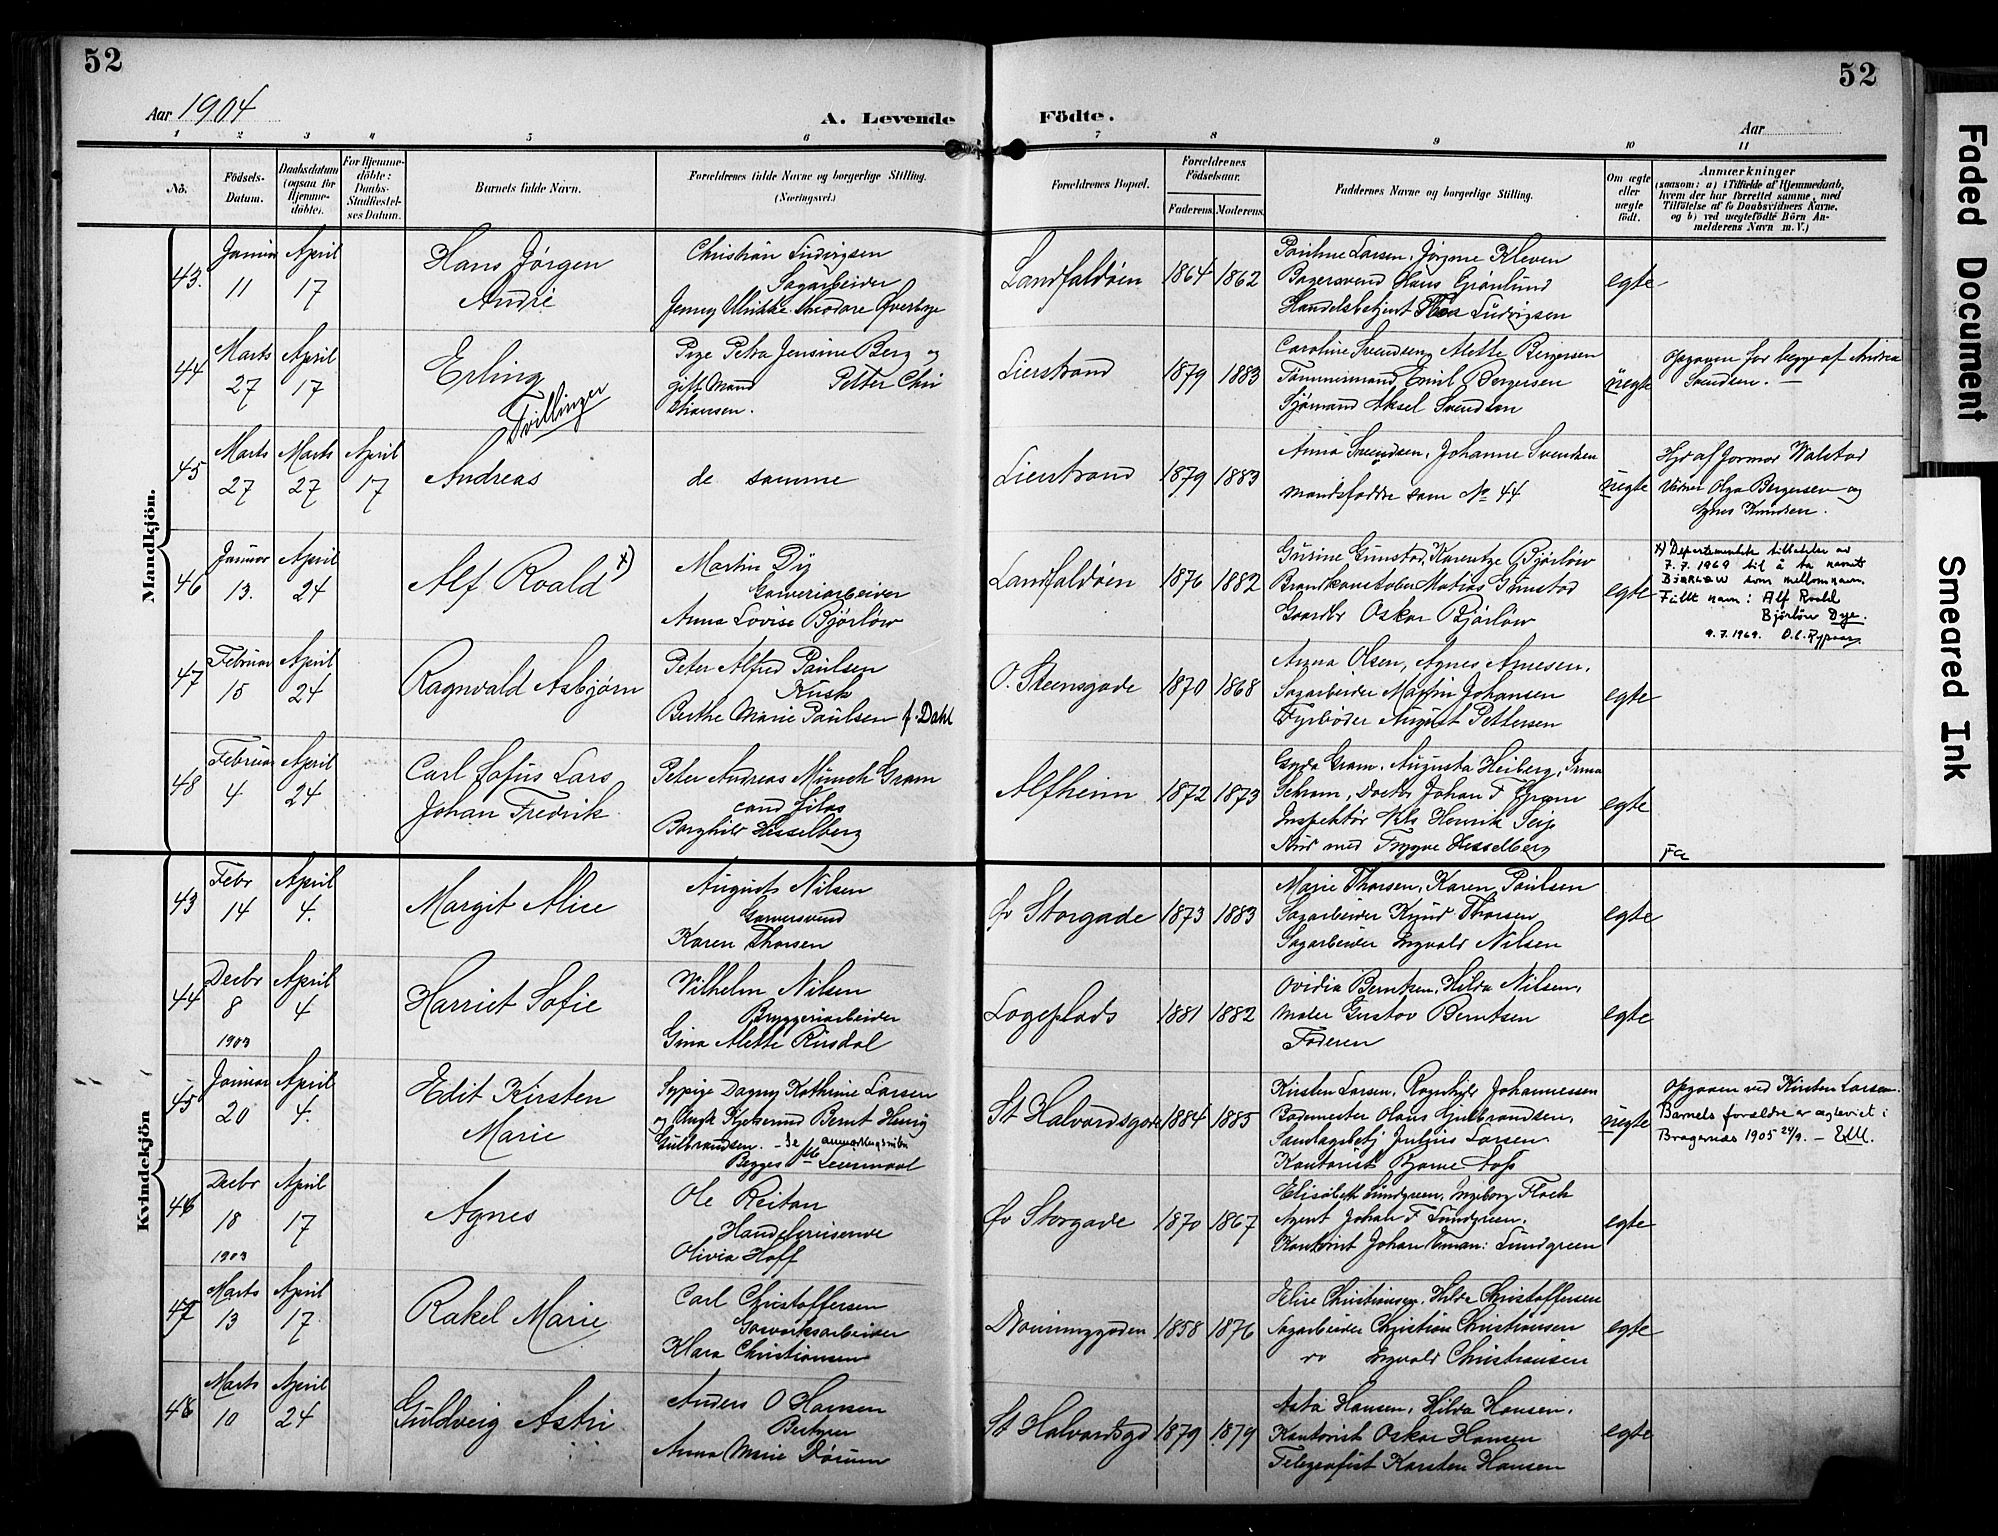 52
52
Aar 1904
A. Levende Födte.
Aar
1 2 3 4 5 6 7 8 9 10 11
No.
Födsels-Datum.
Daabsdatum (ogsaa for Hjemme-döbte).
For Hjemme-döbte: Daabs-Stadfæstel-ses Datum.
Barnets fulde Navn.
Forældrenes fulde Navne og borgerlige Stilling. (Næringsvei.)
Forældrenes Bopæl.
Forældrenes Födselsaar.
Faderens. Moderens.
Faddernes Navne og borgerlige Stilling.
Om ægte eller uægte født.
Anmærkninger
(saasom: a) i Tilfælde af Hjemmedaab, hvem der har forrettet samme, med Tilføielse af to Daabsvidners Navne, og b) ved uægtefödte Börn An-melderens Navn m. V.)
Mandkjön.
43. Januar 11 April 17
Hans Jørgen André
Christian Ludvigsen
Sagarbeider
Jenny Ulrikke Theodore Øverbye
Landfaldøen 1864 1862
Pauline Larsen, Jörgine Kleven
Bagersvend Hans Grønlund
Handelsbetjent Thos Ludvigsen
egte
44 Marts 27 April 17
Erling
Tvillinger
Pige Petra Jensine Berg og
gift Mand Petter Chri
stiansen.
Lierstrand 1879 1883
Caroline Svendsen, Alette Bergersen
Tömmermand Emil Bergersen
Sjømand Aksel Svendsen
uegte
Opgaven for begge af Andrea
Svendsen. —
45 Marts 27 Marts 27 April 17
Andreas
de samme
Lierstrand 1879 1883
Anna Svendsen, Johanne Svendsen
mandsfaddre som No 44
uegte
Hjd af Jormor Walstad
Vidner Olga Bergersen og
Agnes Knudsen.
46 Januar 13. April 24
Alf Roald x)
Martin Dy
Garveriarbeider
Anna Lovise Bjørløw
Landfaldøen 1876 1882
Gusine Gunstad, Karen Bjørløw
Brandkonstabel Matias Gunstad
Gaardbr Oskar Bjørløw
egte
x) Departementets tillatelse av
7.7.1969 til å ta navnet
Bjørløw som mellomnavn.
Fullt navn: Alf Roald
Bjørløw Dye.
9.7.1969.
47 Februar 15 April 24
Ragnvald Asbjørn
Peter Alfred Paulsen
Kusk
Berthe Marie Paulsen f. Dahl
O. Steensgade 1870 1868
Anna Olsen, Agnes Arnesen,
Sagarbeider Martin Johansen
Fyrbøder August Pettersen
egte
48 Februar 4 April 24
Carl Sofus Lars
Johan Fredrik
Peter Andreas Münch Gram
cand filos
Borghild Hesselberg
Alfheim 1872 1873
Gyda Gram, Augusta Heiberg, Irma
Schram, Doctor Johan F Gram
Inspektör Nils Henrik Seip
Stud med Trygve Hesselberg
egte
Kvindekjön
43 Febr 14 April 4.
Margit Alice
August Nilsen
Garversvend
Karen Thorsen
Øv Storgade 1873 1883
Marie Thorsen, Karen Paulsen
Sagarbeider Knud Thorsen
Sagarbeider Ingvald Nilsen
egte
44 Decbr 8 1903 April 4
Harriet Sofie
Vilhelm Nilsen
Bryggeriarbeider
Gina Alette Rusdal
Lögeplads 1881 1882
Ovidia Berntsen, Hilda Nilsen,
Maler Gustav Berntsen
Faderen
egte
45 Januar 20 April 4.
Edit Kirsten
Marie
Sypige Dagny Kathrine Larsen
og Ungk Kjelsmed Bernt Henrig
Gulbrandsen. — Se anmærkngsrubr
Begges 1ste Leiermaal
St Halvardsgade 1884 1885
Kirsten Larsen, Ragnhild Johannessen
Bademester Olaus Gulbrandsen,
Samlagsbetj Julius Larsen
Kontorist Bjarne Foss
uegte
Opgaven ved Kirsten Larsen.
Barnets forældre er ægteviet i
Bragernæs 1905 24/9. —
46 Decbr 18 1903 April 17
Agnes
Ole Reitan
Handelsreisende
Olivia Hoff
Øv Storgade 1870 1867
Elisabeth Lundgreen, Ingeborg Floch
Agent Johan F Lundgreen.
Kontorist Johan Lundgreen
egte
47 Marts 13 April 17
Rakel Marie
Carl Christoffersen
Gasverksarbeider
Klara Christiansen
Dronninggaden 1858 1876
Elise Christiansen, Hilda Christoffersen
Sagarbeider Christian Christiansen
do Ingvald Christiansen
egte
48 Marts 10 April 24
Guldveig Astri
Anders O Hansen
Betjent
Anna Marie Dørum
St Halvardsgd 1879 1879
Asta Hansen, Hilda Hansen,
Kontorist Oskar Hansen
Telegrafist Karsten Hansen
egte
Faded Document
Smeared Ink